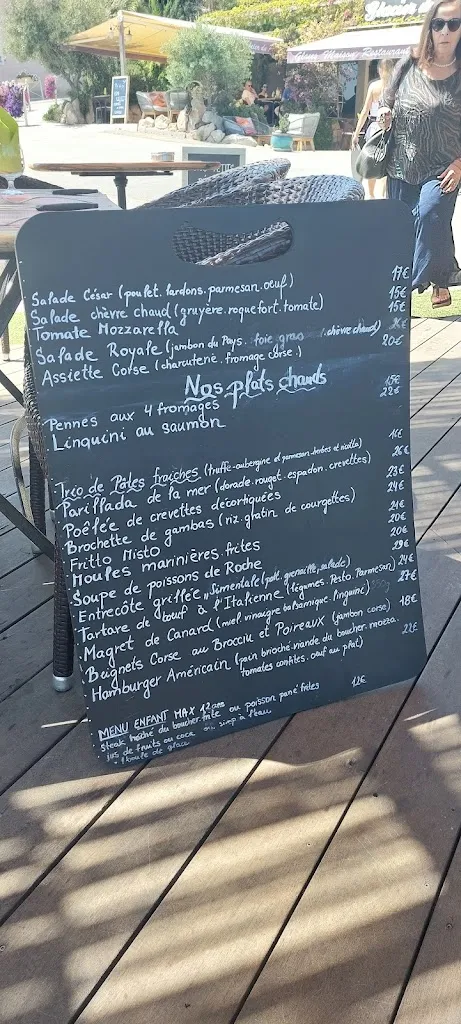 Glacier
Glacier Maison Restaurant
Salade César (poulet. lardons. parmesan. œuf) 17€
Salade chèvre chaud (gruyère. roquefort. tomate) 15€
Tomate Mozzarella 15€
Salade Royale (jambon du Pays. foie gras chèvre chaud)
Assiette Corse (charcuterie. fromage corse.) 20€
Nos plats chauds
Pennes aux 4 fromages 15€
Linquini au saumon 22€
Trio de Pâtes fraîches (truffe-aubergine et parmesan-herbes et ricotta) 16€
Parillada de la mer (dorade. rouget. espadon. crevettes) 26€
Poêlée de crevettes décortiquées 23€
Brochette de gambas (riz. gratin de courgettes) 24€
Fritto Misto 21€
Moules marinières. frites 20€
Soupe de poissons de Roche 20€
Entrecôte grillée "Simentale" (grenaille, salade) 29€
Tartare de bœuf à l'Italienne (légumes. Pesto. Parmesan) 24€
Magret de Canard (miel. vinaigre balsamique. linguini) 27€
Beignets Corse au Brocciu et Poireaux (jambon corse) 18€
Hamburger Américain (pain brioché-viande du boucher. mozza. 22€
tomates confites. œuf au plat)
MENU ENFANT MAX 12 ans 12€
Steak haché du boucher. frite ou poisson pané frites
jus de fruits ou coca ou sirop à l'eau
1 boule de glace